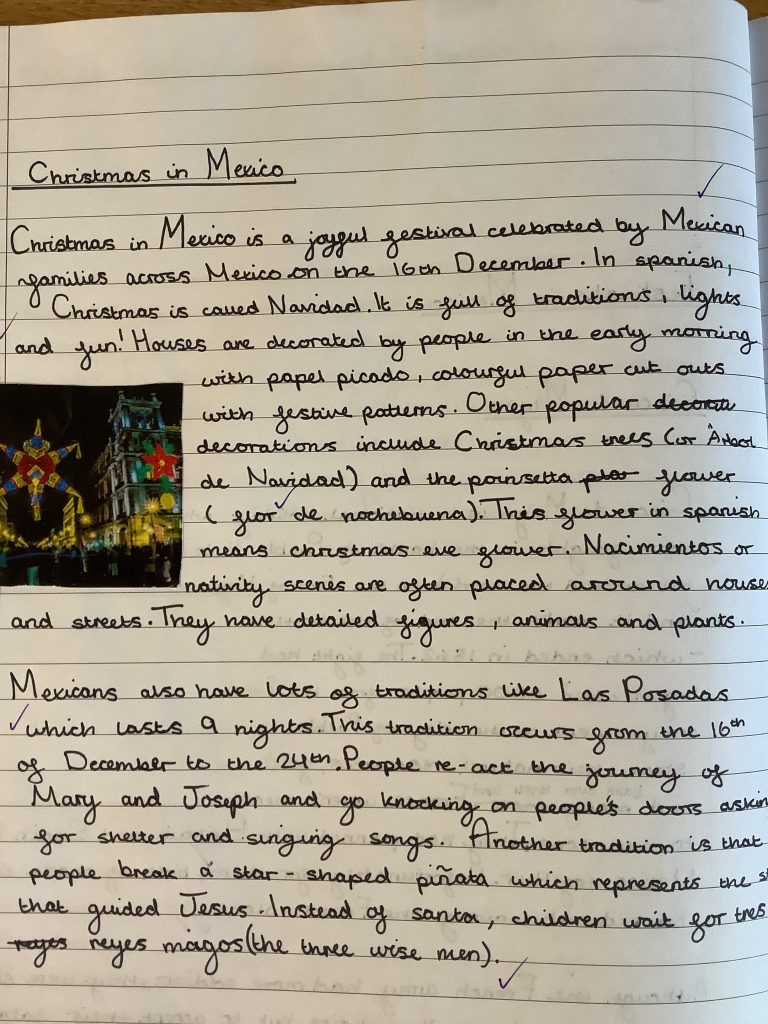 Christmas in Mexico
Christmas in Mexico is a joyful festival celebrated by Mexican
families across Mexico on the 16th December. In spanish,
Christmas is called Navidad. It is full of traditions, lights
and fun! Houses are decorated by people in the early morning
with papel picado, colourful paper cut outs
with festive patterns. Other popular decorati
decorations include Christmas trees (or Árbol
de Navidad) and the poinsetta flower
(flor de nochebuena). This flower in spanish
means christmas eve flower. Nacimientos or
nativity scenes are often placed around house
and streets. They have detailed figures, animals and plants.
Mexicans also have lots of traditions like Las Posadas
which lasts 9 nights. This tradition occurs from the 16th
of December to the 24th. People re-act the journey of
Mary and Joseph and go knocking on people's doors askin
for shelter and singing songs. Another tradition is that
people break a star-shaped piñata which represents the s
that guided Jesus. Instead of santa, children wait for tres
reyes reyes magos (the three wise men).